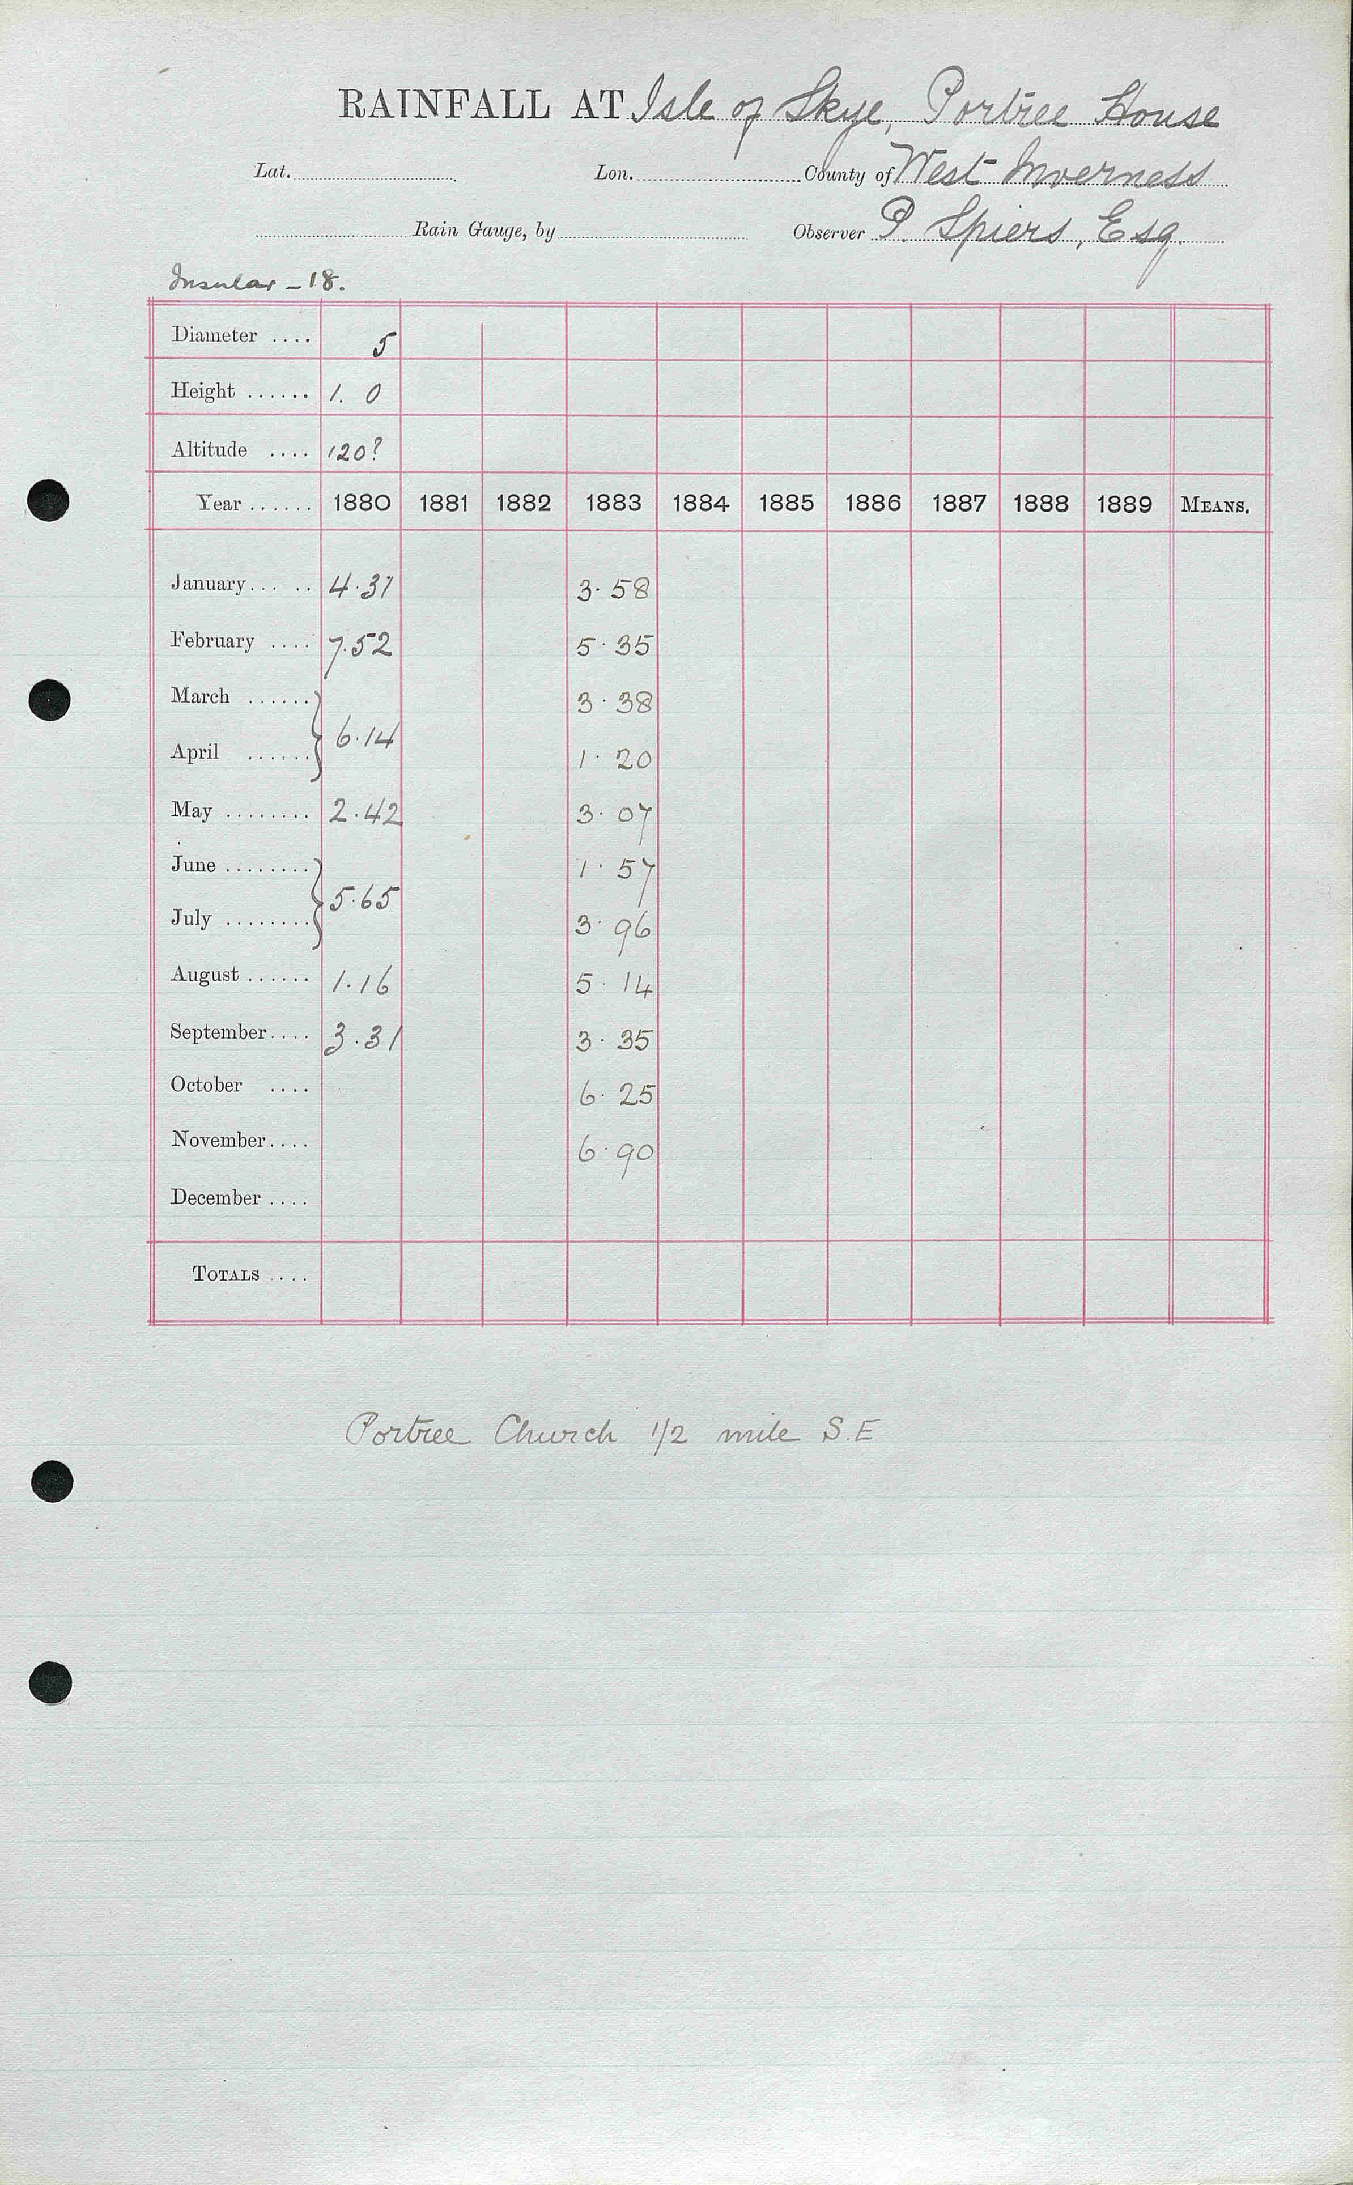 RAINFALL AT Isle of Skye, Portree House
Lat. Lon. County of West Inverness
Rain Gauge, by Observer P. Spiers, Esq.
Insular - 18.
Diameter .... 5
Height ...... 1. 0
Altitude .... 120?
Year ...... 1880 1881 1882 1883 1884 1885 1886 1887 1888 1889 MEANS.
January... .. 4.31 3.58
February .... 7.52 5.35
March ...... 3.38
6.14
April ...... 1.20
May ........ 2.42 3.07
June ........ 1.57
5.65
July ........ 3.96
August ...... 1.16 5.14
September.... 3.31 3.35
October .... 6.25
November.... 6.90
December ....
TOTALS ....
Portree Church 1/2 mile S.E